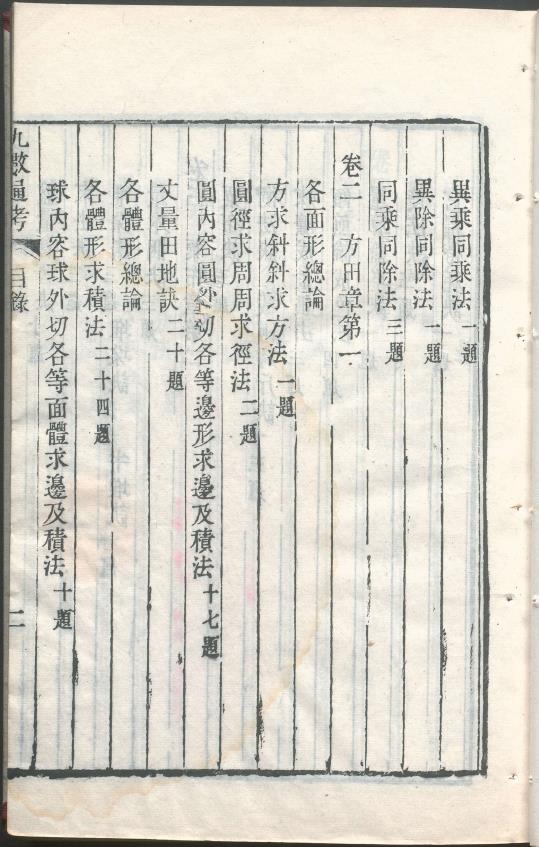 異乘同乘法 一題
異除同除法 一題
同乘同除法 三題
卷二 方田章第一
各面形總論
方求斜斜求方法 一題
圓徑求周周求徑法 二題
圓內容圓外切各等邊形求邊及積法 十七題
丈量田地訣 二十題
各體形總論
各體形求積法 二十四題
球內容球外切各等面體求邊及積法 十題
九數通考 目錄 二